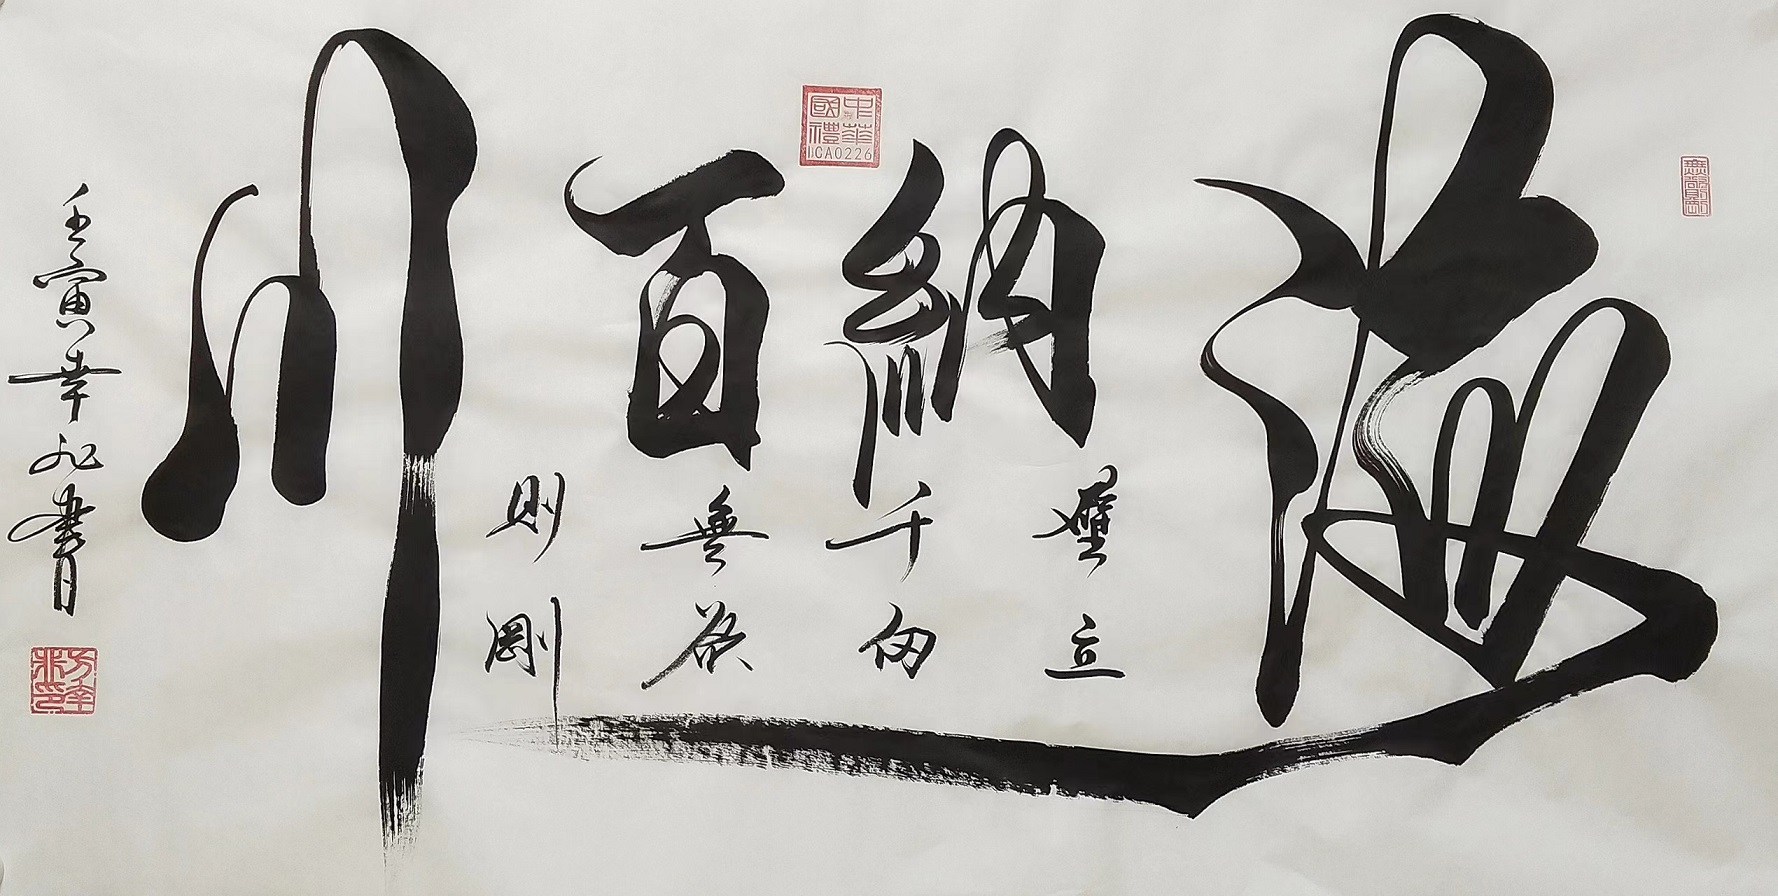 海納百川
壁立
千仞
無欲
則剛
壬寅幸書
中華
國禮
IICA0226